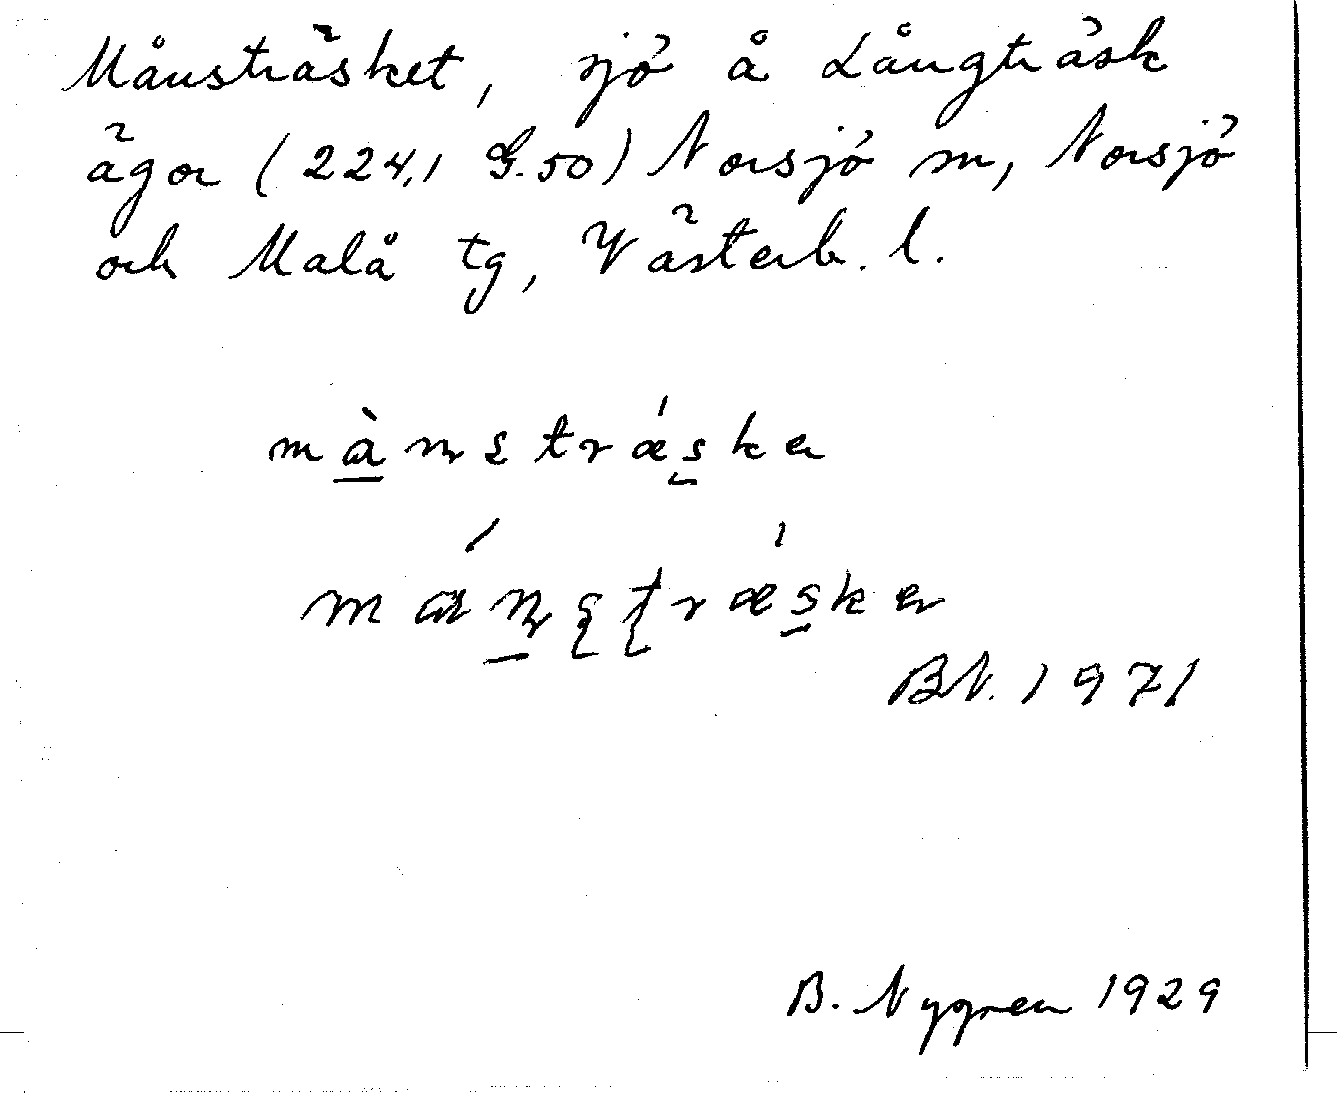 Månsträsket, sjö å Långträsk
ägor (224,1 G.50) Norsjö sn, Norsjö
och Malå tg, Västerb. l.
mànstrǽskɘ
mánʂʈrǽskɘ
BN. 1971
B. Nygren 1929